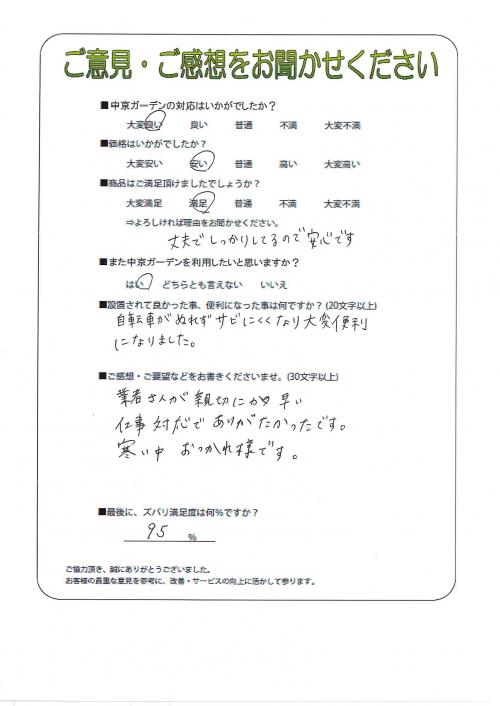 ご意見・ご感想をお聞かせください
■中京ガーデンの対応はいかがでしたか?
大変良い 良い 普通 不満 大変不満
■価格はいかがでしたか?
大変安い 安い 普通 高い 大変高い
■商品はご満足頂けましたでしょうか?
大変満足 満足 普通 不満 大変不満
⇒よろしければ理由をお聞かせください。
丈夫でしっかりしてるので安心です
■また中京ガーデンを利用したいと思いますか?
はい どちらとも言えない いいえ
■設置されて良かった事、便利になった事は何ですか?(20文字以上)
自転車がぬれずサビにくくなり大変便利
になりました。
■ご感想・ご要望などをお書きくださいませ。(30文字以上)
業者さんが親切に 早い
仕事対応でありがたかったです。
寒い中 おつかれ様です。
■最後に、ズバリ満足度は何%ですか?
95 %
ご協力頂き、誠にありがとうございました。
お客様の貴重な意見を参考に、改善・サービスの向上に活かして参ります。